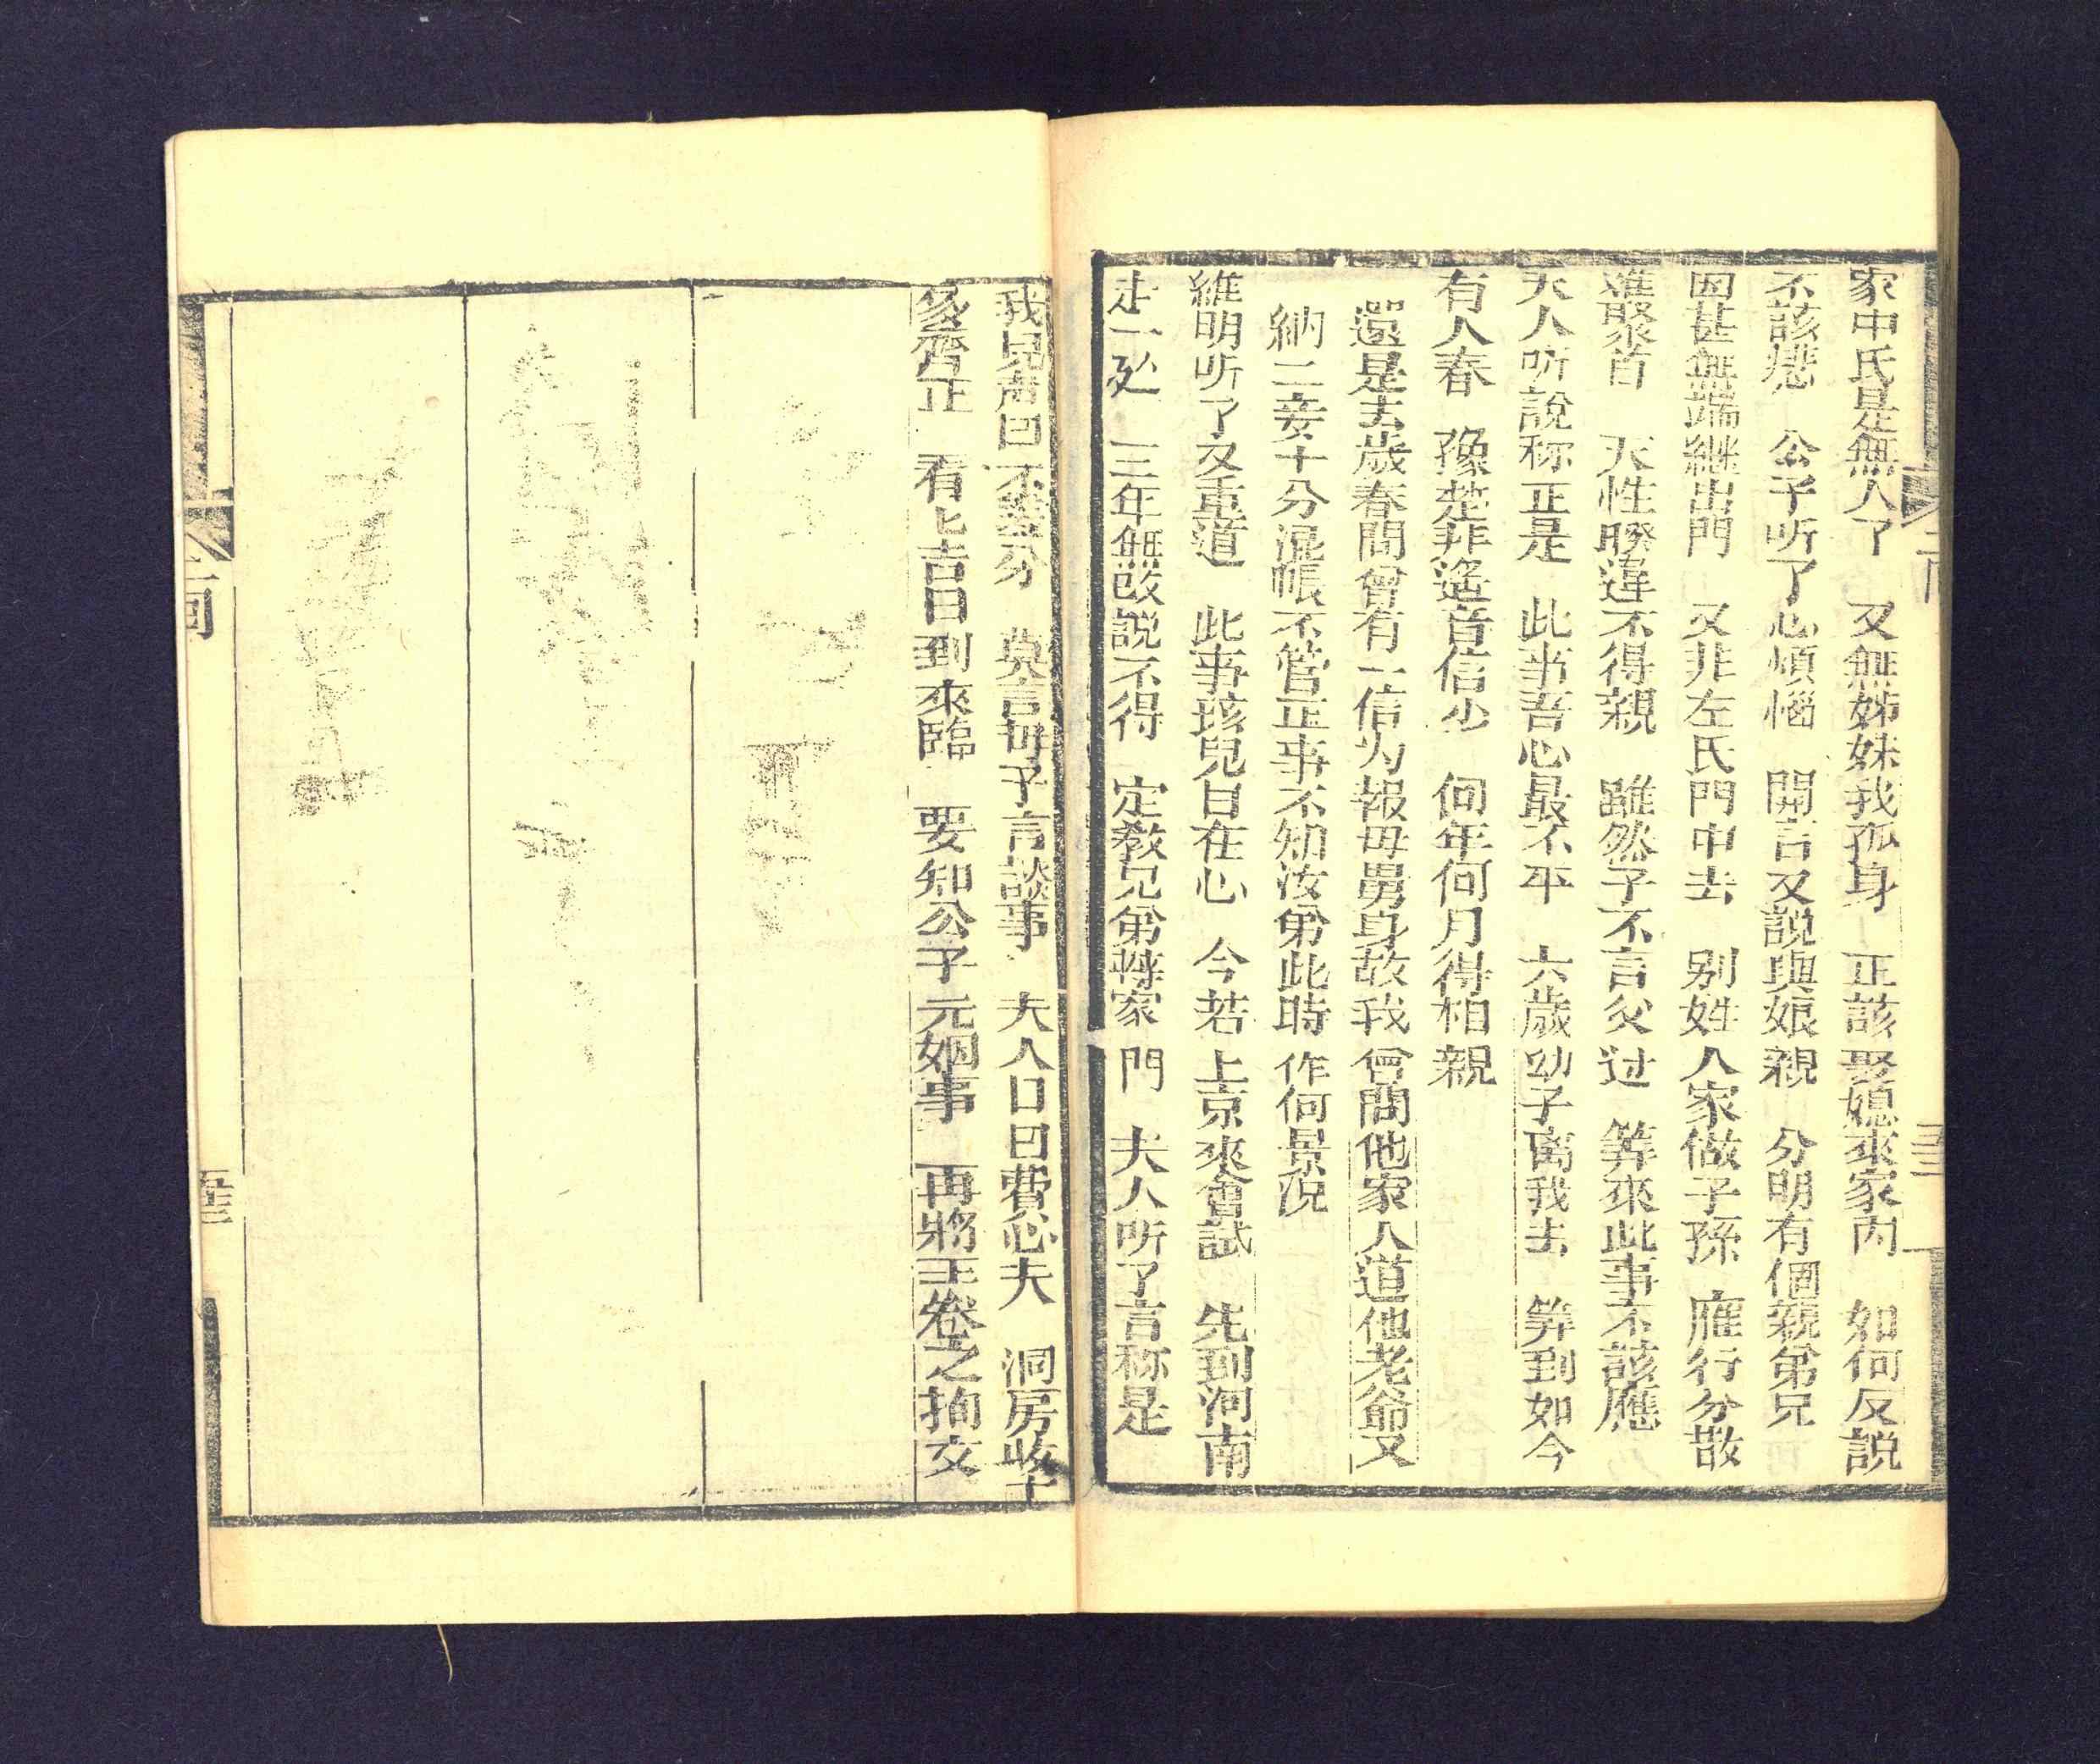 家中氏是無人了　又無姊妹我孤身　正該娶媳來家內　如何反說
不該悲　公子听了心煩惱　開言又說與娘親　分明有個親弟兄
因甚無端继出門　又非左氏門中去　别姓人家做子孫　雁行分散
難聚首　天性暌違不得親　雖然子不言父过　筭來此事不該應
夫人听說称正是　此事吾心最不平　六歲幼子离我去　筭到如今
有人春　豫楚非遙音信少　何年何月得相親
還是去歲春間曾有一信为報母舅身故我曾問他家人道他老爺又
納二妾十分混帳不管正事不知汝弟此時作何景況
維明听了又重道　此事孩兒自在心　今若上京來會試　先到河南
走一处　三年無改說不得　定教兄弟轉家門　夫人听了言称是
我兒声曰不差分　莫言母子言談事　夫人日日費心夫　洞房收十
多齊正　看上吉日到來臨　要知公子元姻事　再將王卷之拘文